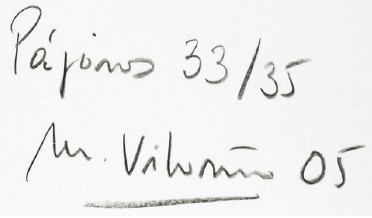 Pájaros 33/35
M. Viloria 05